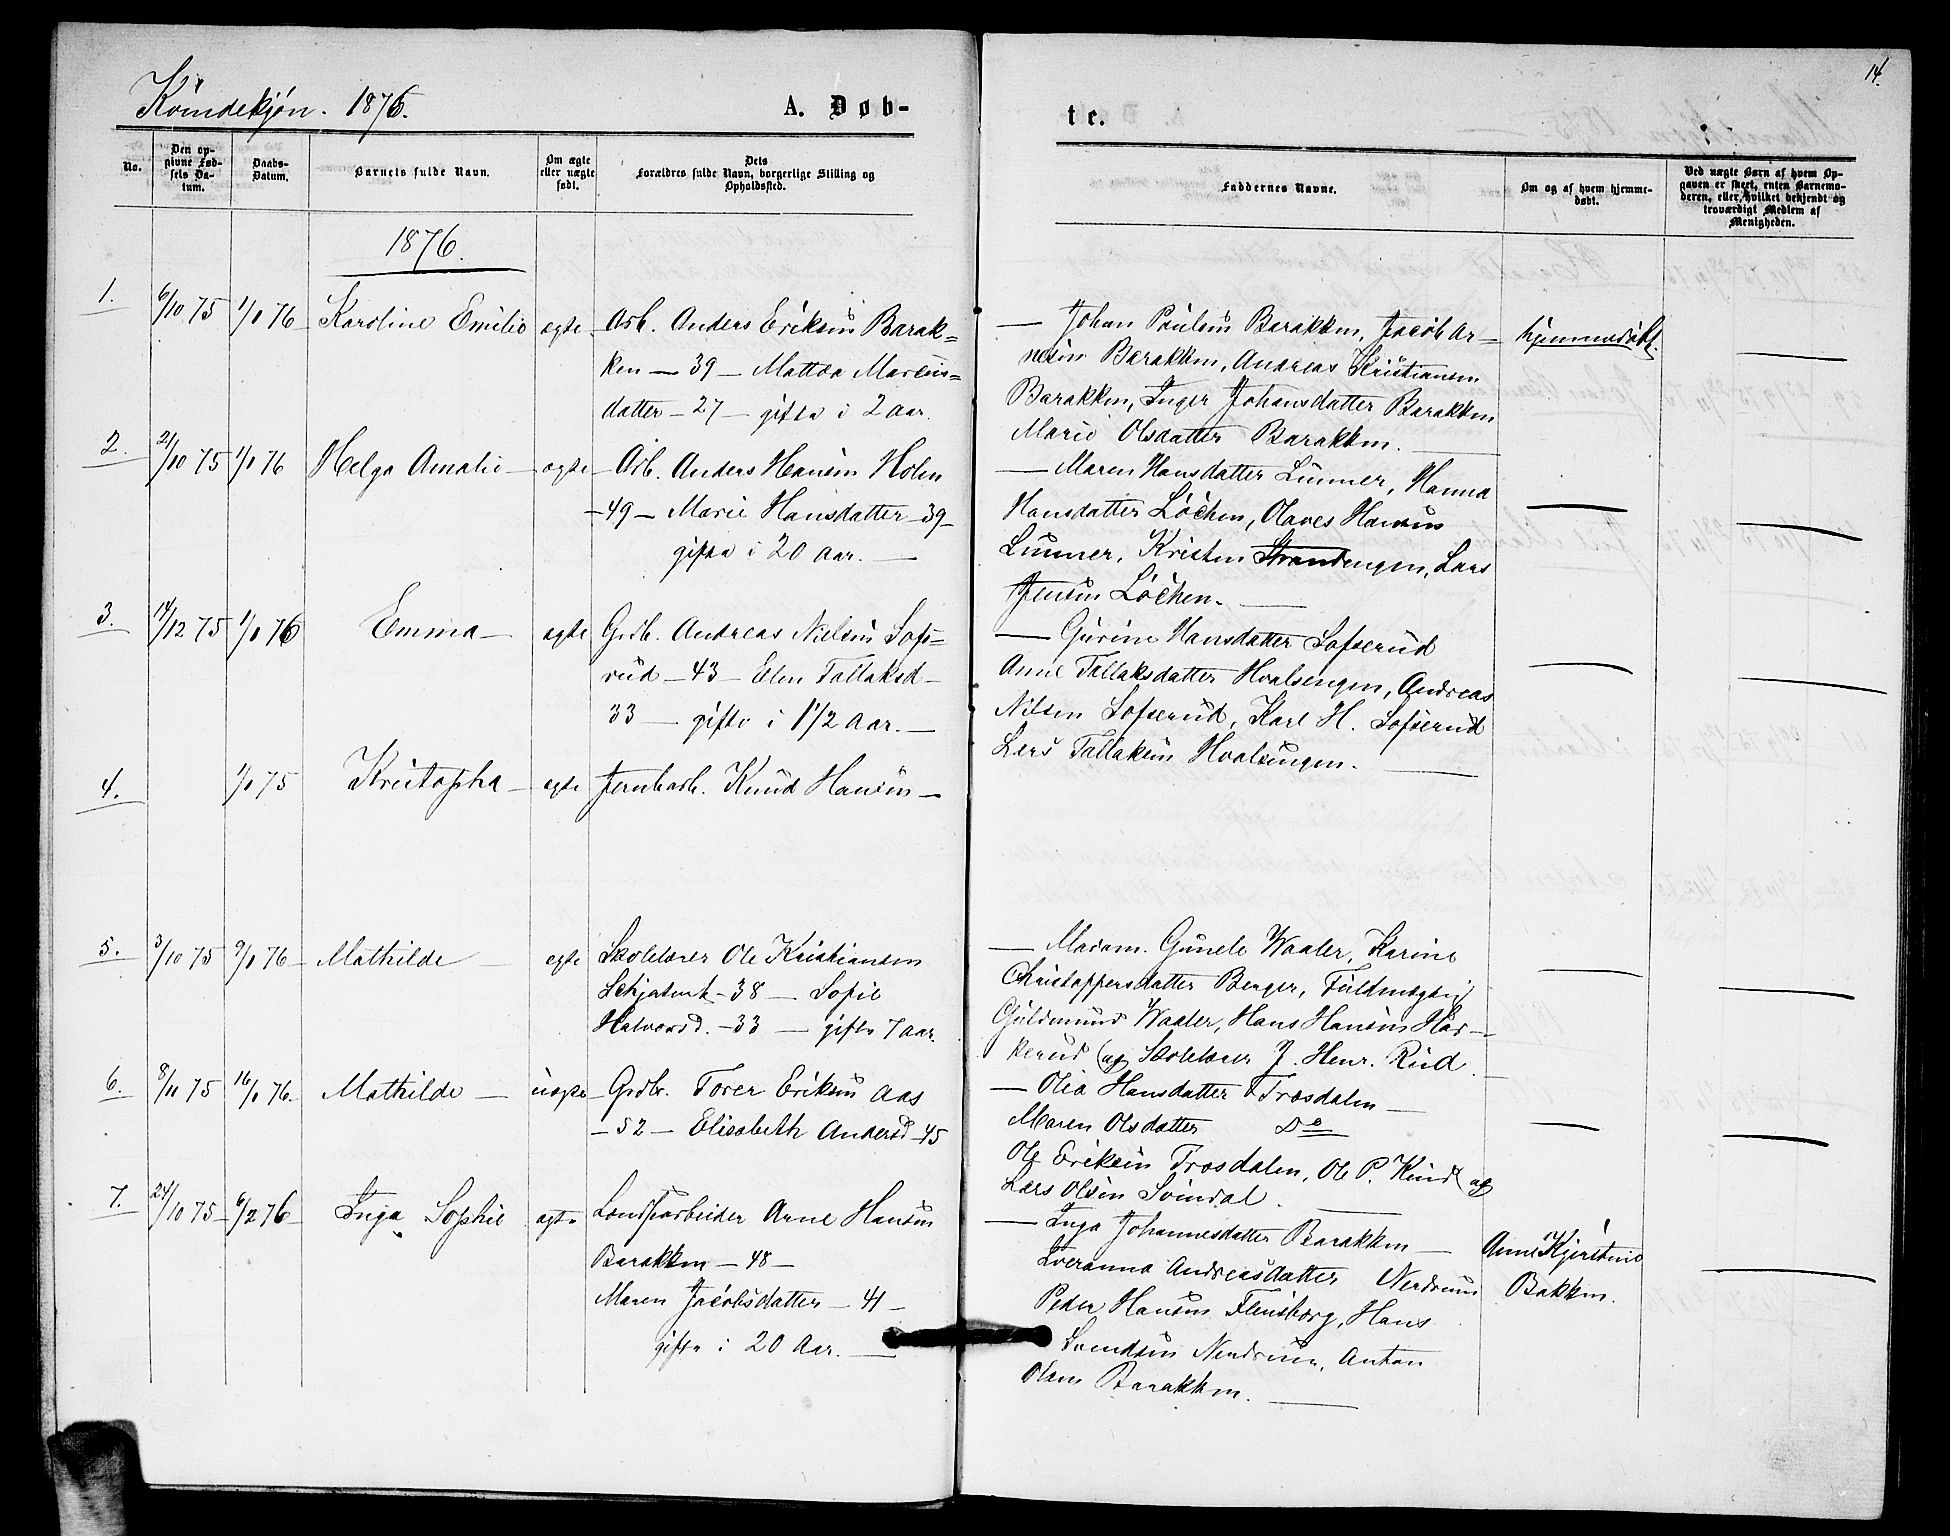 14.
Kvindekjøn. 1876.
A. Døb-
te.
No.
Den op-
givne Fød-
sels Da-
tum.
Daabs-
Datum.
Barnets fulde Navn.
Om ægte
eller uægte
født.
Dets
Forældres fulde Navn, borgerlige Stilling og
Opholdssted.
Faddernes Navne.
Om og af hvem hjemme-
døbt.
Ved uægte Børn af hvem Op-
gaven er skeet, enten Barnemo-
deren, eller hvilket bekjendt og
troværdigt Medlem af
Menigheden.
1876.
1. 6/10 75 1/1 76 Karoline Emilie ægte
Arb. Anders Eriksen Barak-
ken — 39 — Mathea Marcus-
datter — 27 — gifte i 2 Aar.
— Johan Paulsen Barakken, Jacob Ar-
nesen Barakken, Andreas Kristiansen
Barakken, Inger Johansdatter Barakken
Marie Olsdatter Barakken.
hjemmedøbt.
2. 21/10 75 1/1 76 Helga Amalie — ægte
Arb. Anders Hansen Holm
— 49 — Marie Hansdatter — 39 —
gifte i 20 Aar. —
— Maren Hansdatter Linner, Hanna
Hansdatter Løchen, Olaves Hansen
Linner, Kristen Strandengen, Lars
Jensen Løchen. —
3. 14/12 75 1/1 76 Emma — ægte
Grdb. Andreas Nielsen Sofs-
rud — 43 — Elen Tallaksd —
33 — gifte i 1 1/2 Aar. —
— Gurine Hansdatter Sofserud
Anne Tallaksdatter Hvalsengen, Andreas
Nilsen Sofserud, Karl H. Sofserud
Lars Tallaksen Hvalsengen. —
4. 1/1 75 Kristopha — ægte
Jernbarb. Knud Hansen —
5. 3/10 75 9/1 76 — Mathilde — ægte
Skolelærer Ole Kristiansen
— 38 — Sofie
Halvorsd. — 33 — gifte 7 Aar.
— Madam. Gunele Waaler, Karine
Christophersdatter Berger, Fuldmægtig
Guldmund Waaler, Hans Hansen Har-
kerud og Skolelærer J. Henr. Rud.
6. 8/11 75 16/1 76. Mathilde — uægte
Grdbr. Torer Eriksen Aas
— 52 — Elisabeth Andersd — 45
— Olia Hansdatter Trosdalen —
Maren Olsdatter Do
Ole Eriksen Trosdalen, Ole P. Kind og
Lars Olsen Svindal.
7. 24/10 75 — 6/2 76 — Inga Sophie ægte
Landharbeider Arne Hansen
Barakken — 48 —
Maren Jacobsdatter — 41 —
gifte i 20 Aar. —
— Inga Johannesdatter Barakken —
Andreasdatter Nerdrum
Peder Hansen Flensborg, Hans
Svendsen Nerdrum, Anton
Olsen Barakken. —
Anne Kjerstine
Bakken.